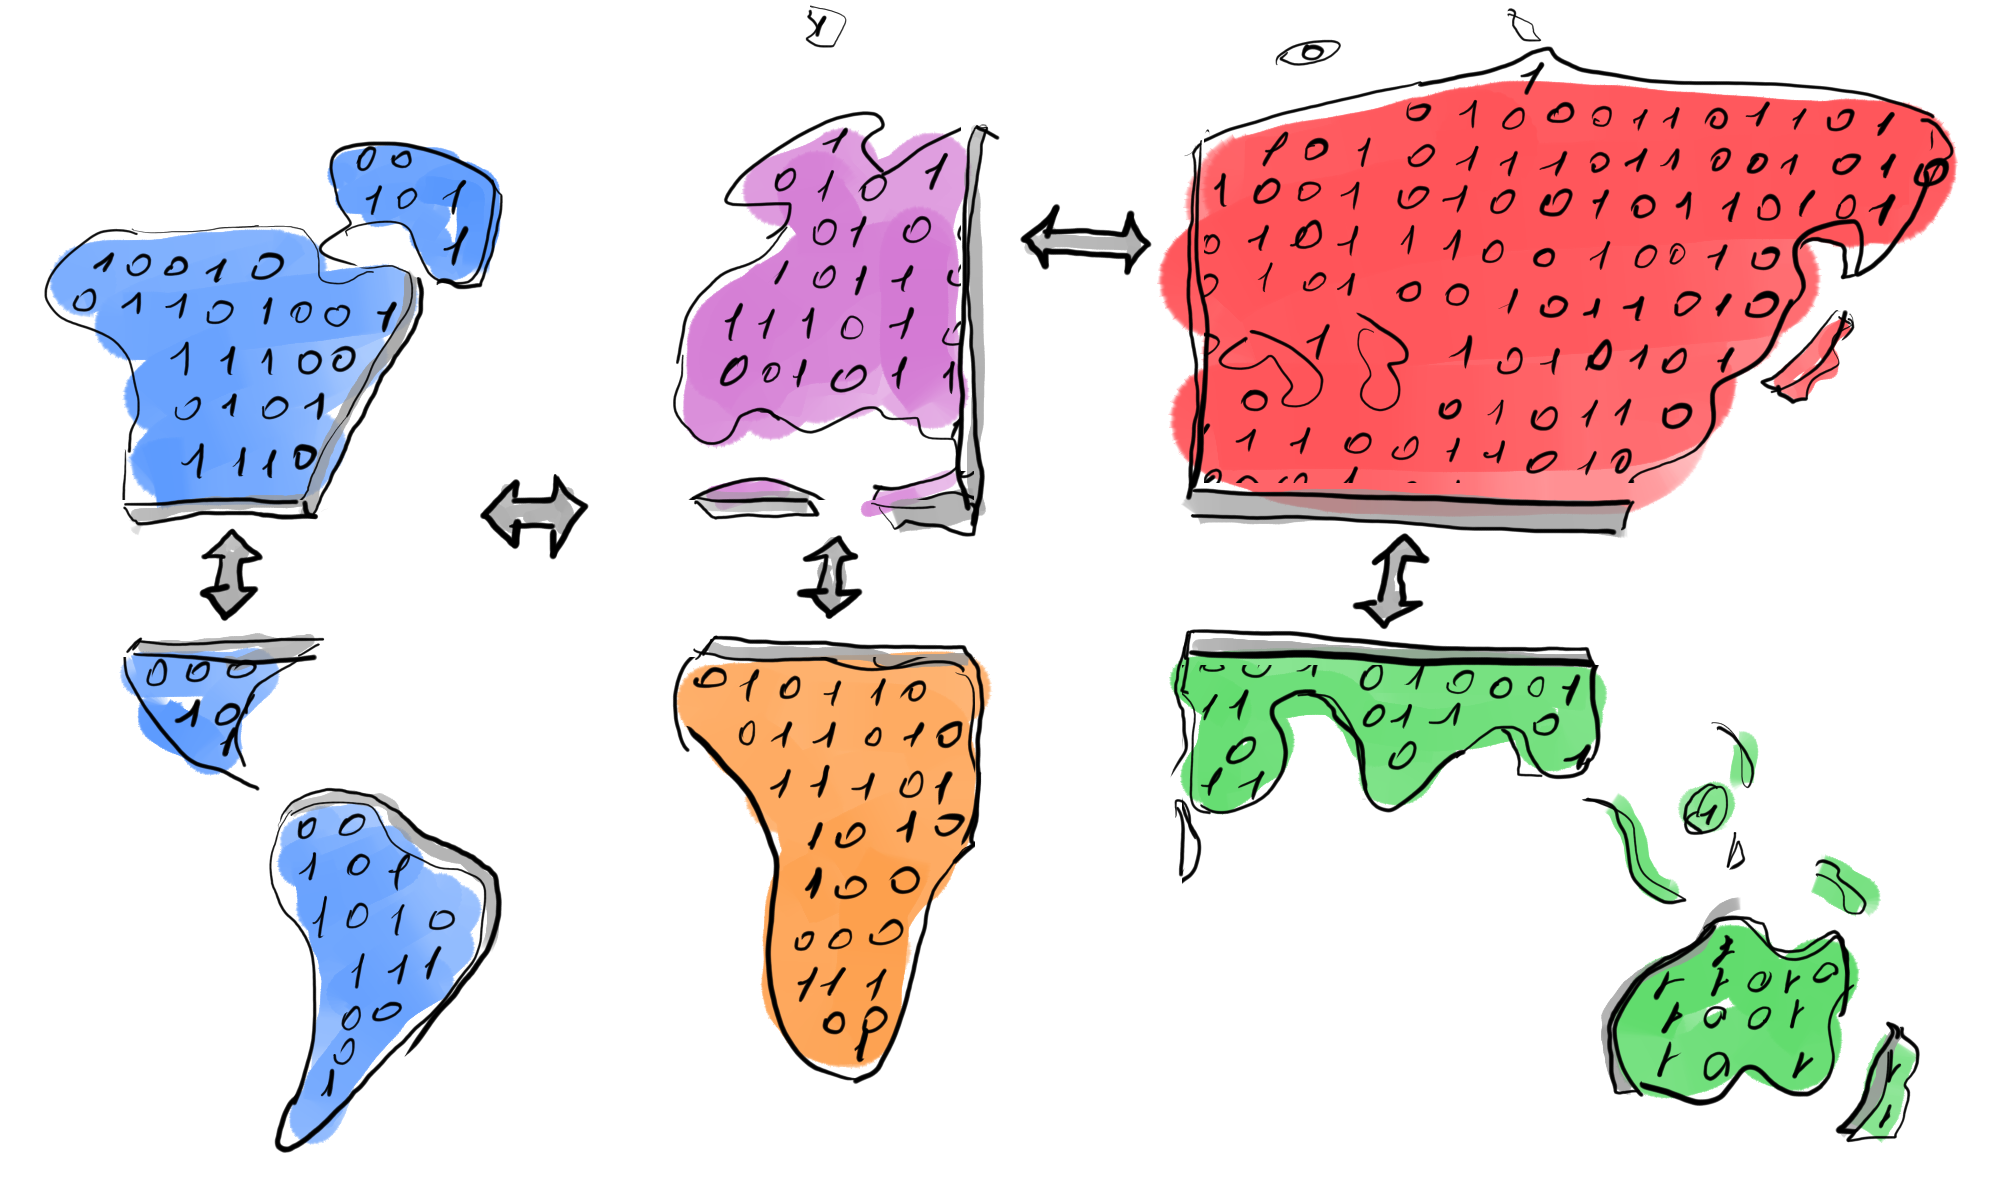 00
101
1
10010
01101001
11100
0101
1110
000
10
1
00
101
1010
111
00
0
1
1
1
010
01 0
1011
111010
001011
010110
011010
11101
1010
100
000
111
00
0
1
010001101101
101 0111011001 010
1001 010001011101
0101 110010010
101 0010110100
1
1010101
0
010110
1100011010
010001
11 011 0
0 0 1
11
1
1
11010
1001
101
1
1